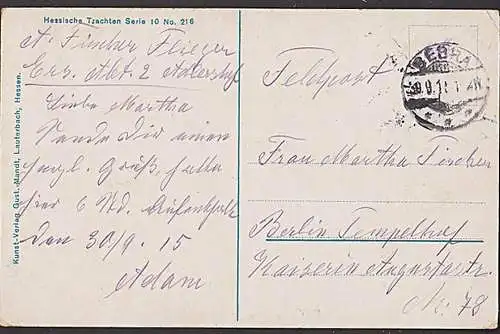 Hessische Trachten Serie 10 No. 216
A. Fircher Flieger
Ers. Abt. 2 Adlershof
Liebe Martha
Sende Dir einen
herzl. Gruß, habe
hier 6 Std. Aufenthalt
den 30/9. 15
Adam
Kunst-Verlag Gust. Mandt, Lauterbach, Hessen.
BEBRA
Feldpost
Frau Martha Fircher
Berlin Tempelhof
Kaiserin Augustastr.
Nr. 78